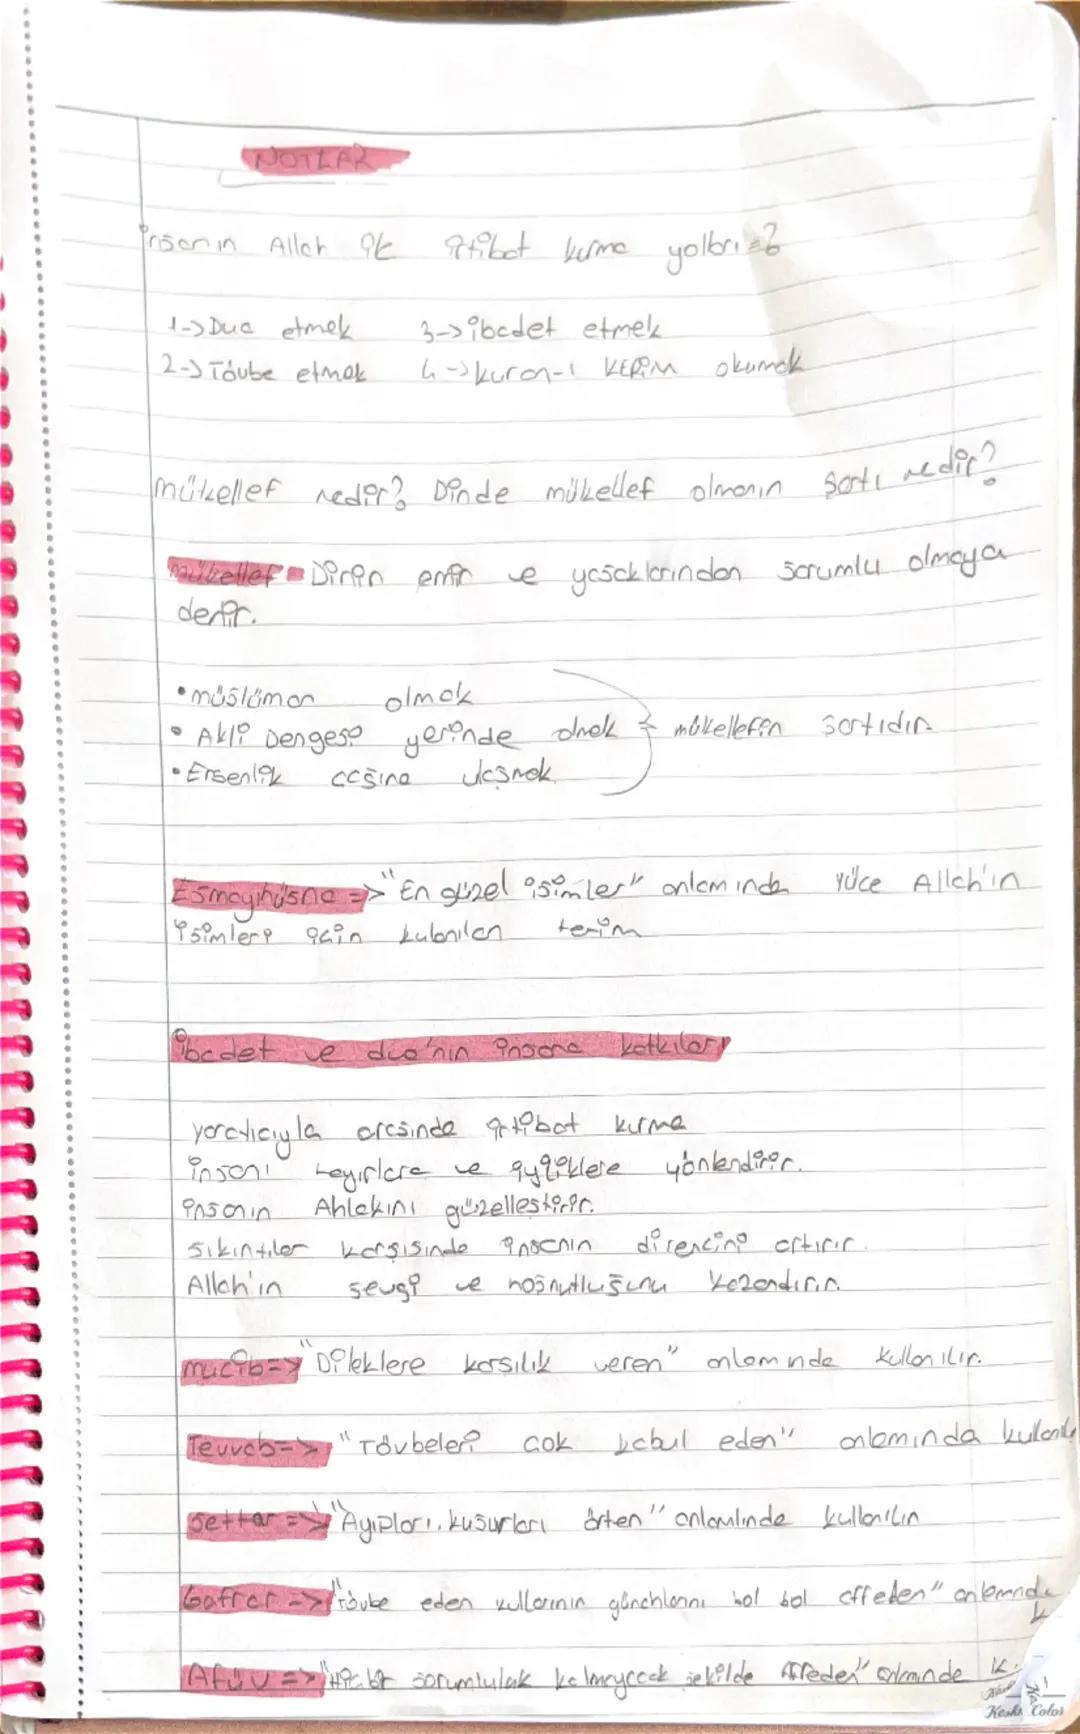 NOTLAR
insanın Allah ile irtibat kurma yolları=?
1->Dua etmek 3->ibadet etmek
2->Tövbe etmek 4->kuran-ı KERİM okumak
mükellef nedir? Dinde mükellef olmanın şartı nedir?
mükellef = Dinin emir ve yasaklarından sorumlu olmaya
denir.
•müslüman olmak
• Akli Dengesi yerinde olmak } mükellefin şartıdır.
•Ersenlik çağına ulaşmak
Esmayihüsna => "En güzel isimler" anlamında Yüce Allah'ın
isimleri için kulanılan terim
ibadet ve dua'nın insana katkıları
yaratıcıyla arasında irtibat kurma
insanı hayırlara ve iyiliklere yönlendirir.
insanın Ahlakını güzelleştirir.
sıkıntılar karşısında insanın direncini artırır.
Allah'ın sevgi ve hoşnutluğunu kazandırır.
mucib=> "Dileklere karşılık veren" anlamında kullanılır.
Tevvab=> "Tövbeleri çok kabul eden" anlamında
Settar => "Ayıpları, kusurları örten" anlamlında kullanılır
Gaffar => "Tövbe eden kullarının günahlarını bol bol affeden" anlamında
k
Afüv => "Hiçbir sorumluluk kalmayacak şekilde Affeden" anlamında k.
Keskin Color